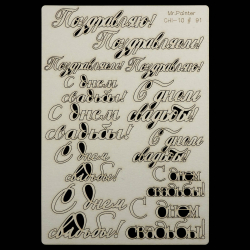 Mr.Painter
CHI-10
91
Поздравляю!
Поздравляем!
Поздравляем!
Поздравляю!
С днем
свадьбы!
С днем
свадьбы!
С днем
свадьбы!
С днем
свадьбы!
С днем
свадьбы!
С днем
свадьбы!
С днем
свадьбы!
С днем
свадьбы!